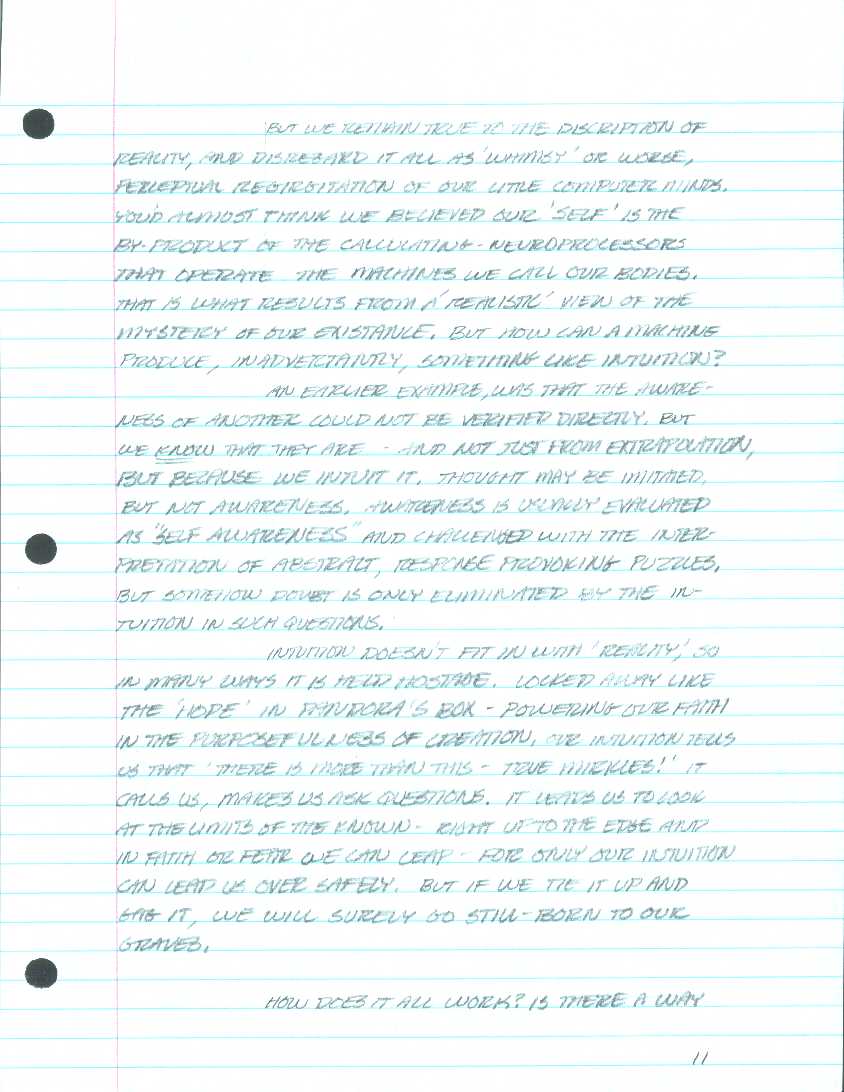 BUT WE REMAIN TRUE TO THE DISCRIPTION OF
REALITY, AND DISREGARD IT ALL AS 'WHIMSY' OR WORSE,
PERCEPTUAL REGIRGITATION OF OUR LITTLE COMPUTER MINDS.
YOU'D ALMOST THINK WE BELIEVED OUR 'SELF' IS THE
BY-PRODUCT OF THE CALCULATING-NEUROPROCESSORS
THAT OPERATE THE MACHINES WE CALL OUR BODIES.
THAT IS WHAT RESULTS FROM A 'REALISTIC' VIEW OF THE
MYSTERY OF OUR EXISTANCE. BUT HOW CAN A MACHINE
PRODUCE, INADVERTANTLY, SOMETHING LIKE INTUITION?
AN EARLIER EXAMPLE, WAS THAT THE AWARE-
NESS OF ANOTHER COULD NOT BE VERIFIED DIRECTLY. BUT
WE KNOW THAT THEY ARE - AND NOT JUST FROM EXTRAPOLATION,
BUT BECAUSE WE INTUIT IT. THOUGHT MAY BE IMITATED,
BUT NOT AWARENESS. AWARENESS IS USUALLY EVALUATED
AS "SELF AWARENESS" AND CHALLENGED WITH THE INTER-
PRETATION OF ABSTRACT, RESPONSE PROVOKING PUZZLES.
BUT SOMEHOW DOUBT IS ONLY ELIMINATED BY THE IN-
TUITION IN SUCH QUESTIONS.
INTUITION DOESN'T FIT IN WITH 'REALITY,' SO
IN MANY WAYS IT IS HELD HOSTAGE. LOCKED AWAY LIKE
THE 'HOPE' IN PANDORA'S BOX - POWERING OUR FAITH
IN THE PURPOSEFULNESS OF CREATION. OUR INTUITION TELLS
US THAT 'THERE IS MORE THAN THIS - TRUE MIRICLES!' IT
CALLS US, MAKES US ASK QUESTIONS. IT LEADS US TO LOOK
AT THE LIMITS OF THE KNOWN - RIGHT UP TO THE EDGE AND
IN FAITH OR FEAR WE CAN LEAP - FOR ONLY OUR INTUITION
CAN LEAD US OVER SAFELY. BUT IF WE TIE IT UP AND
GAG IT, WE WILL SURELY GO STILL-BORN TO OUR
GRAVES.
HOW DOES IT ALL WORK? IS THERE A WAY
11